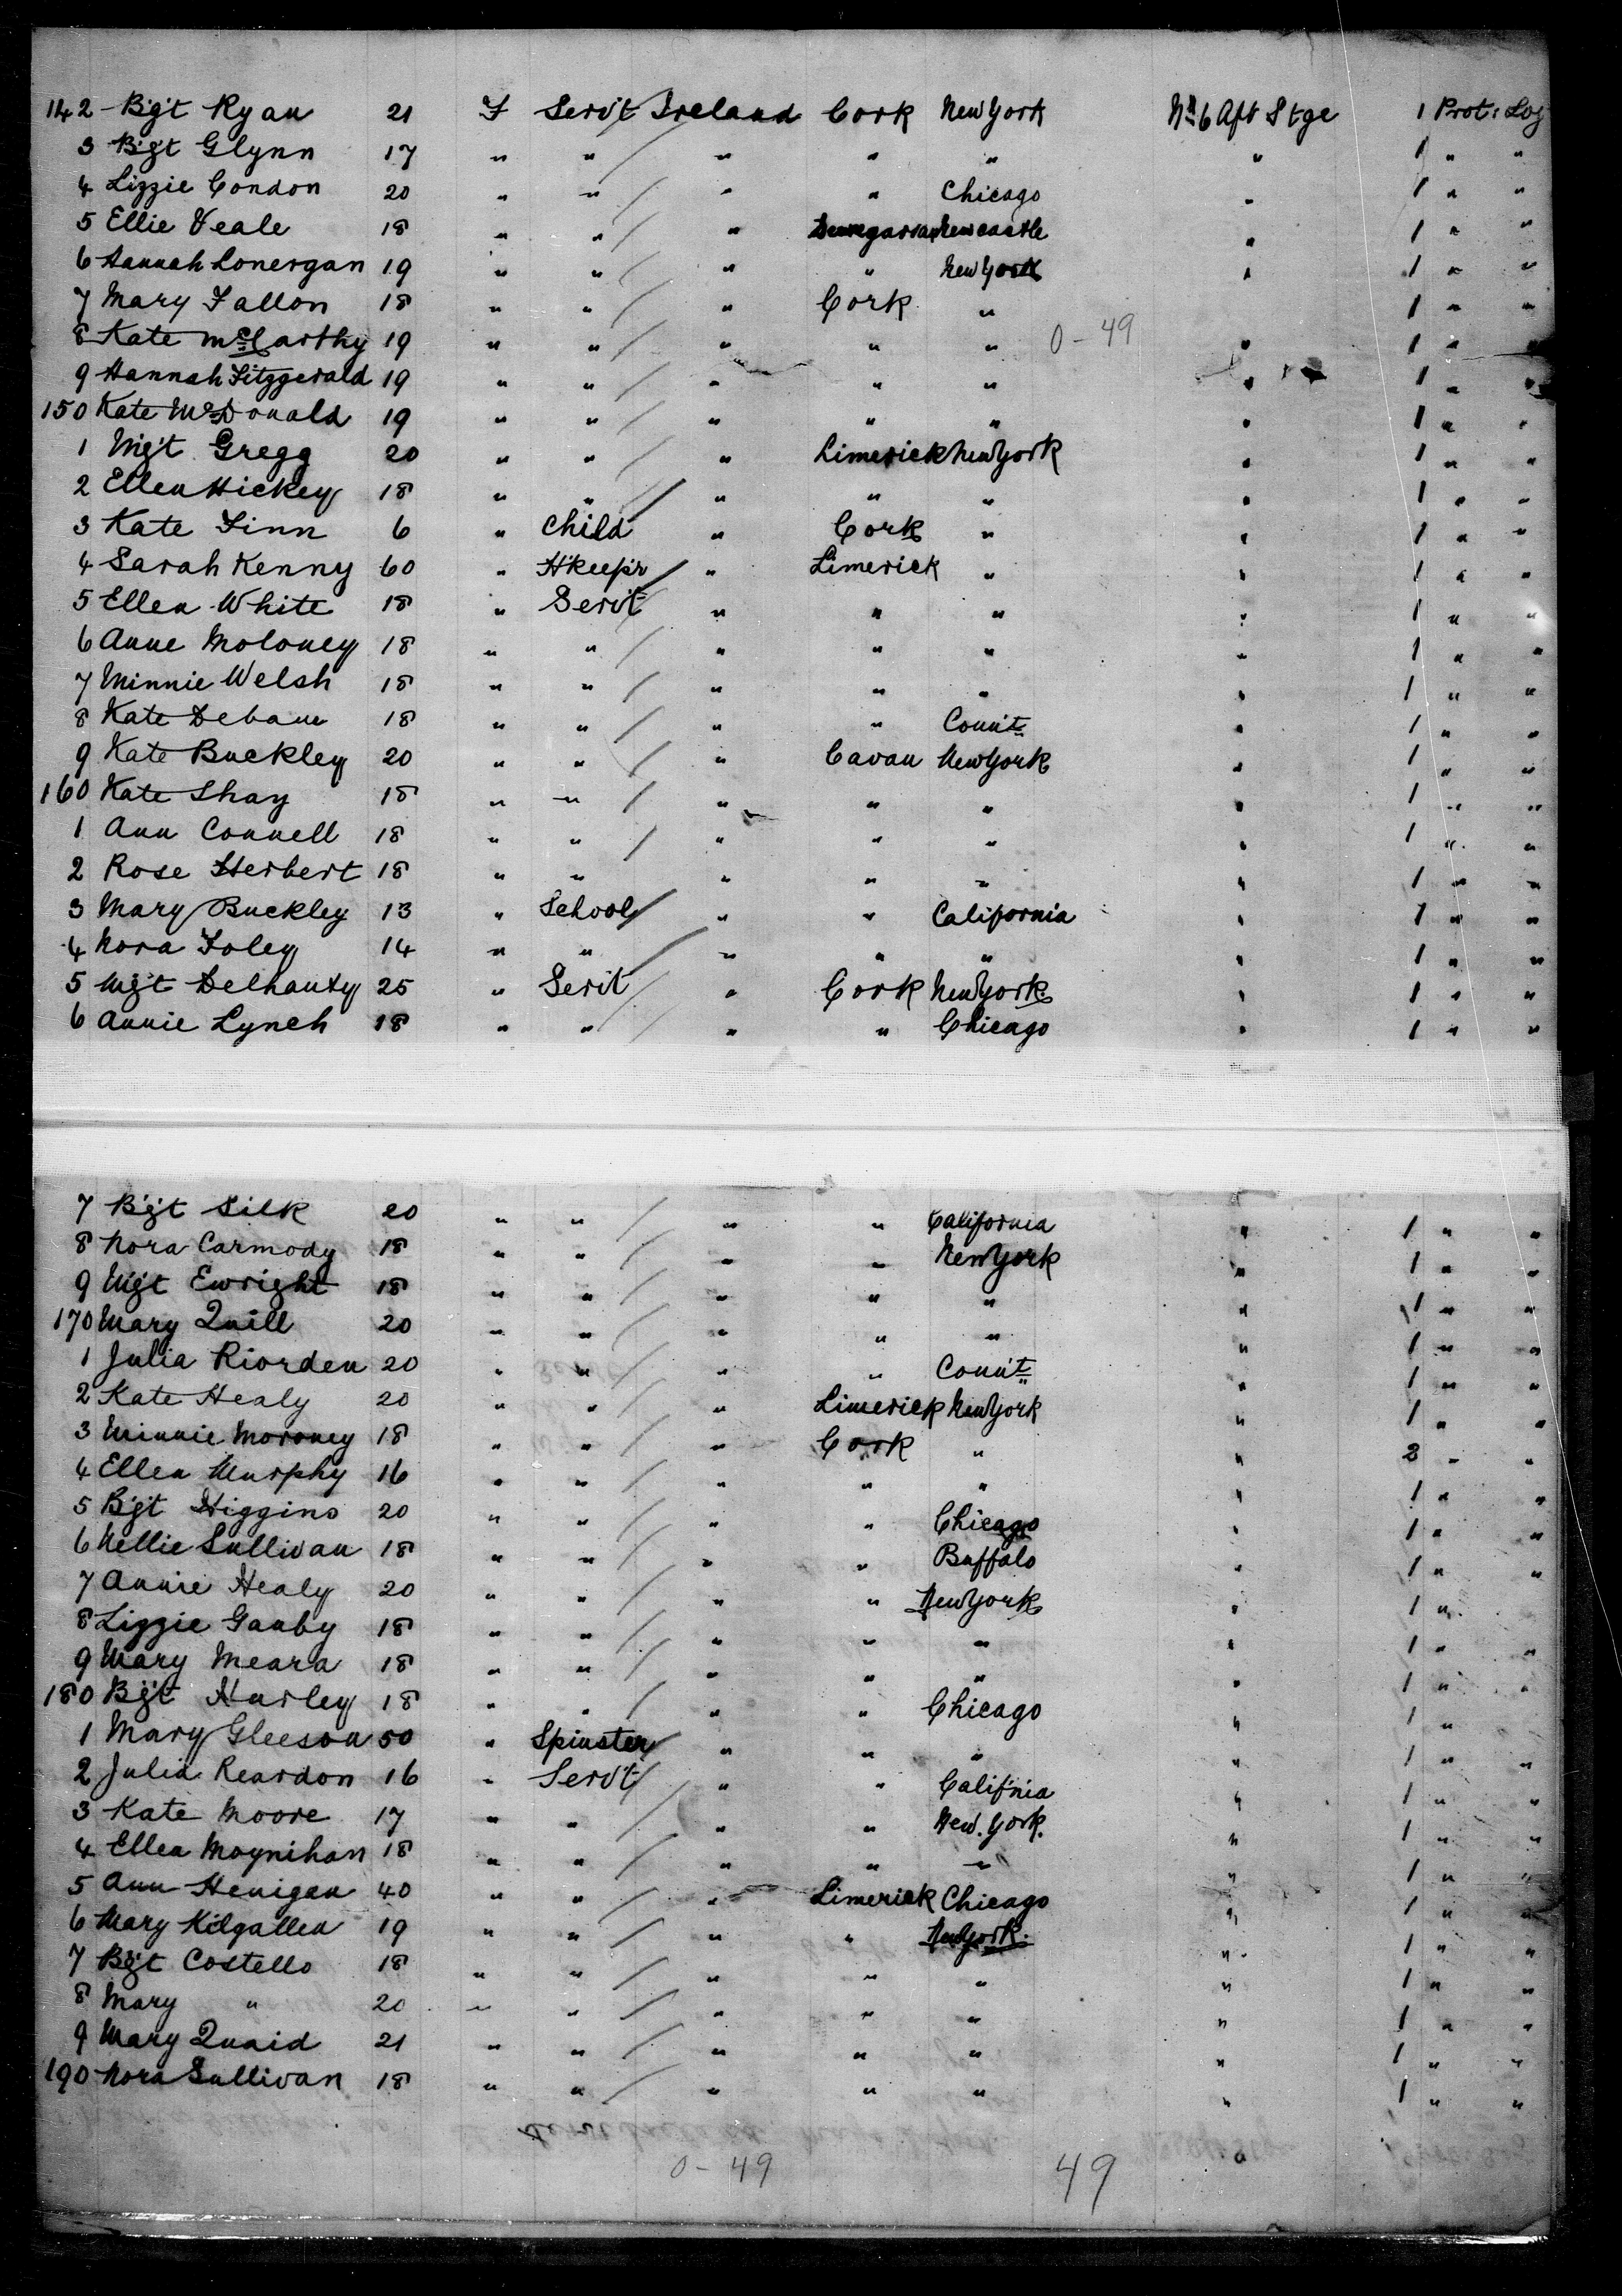 142 Bgt Ryan 21 F Servt Ireland Cork New York No 6 Aft Stge 1 Prot: Log
3 Bgt Glynn 17 " " " " " " 1 " "
4 Lizzie Condon 20 " " " " Chicago " 1 " "
5 Ellie Veale 18 " " " Dungarvan Newcastle " 1 " "
6 Hannah Lonergan 19 " " " " New York " 1 " "
7 Mary Fallon 18 " " " Cork " 1 " "
8 Kate McCarthy 19 " " " " " 0-49 " 1 " "
9 Hannah Fitzgerald 19 " " " " " " 1 " "
150 Kate McDonald 19 " " " " " " 1 " "
1 Mgt Gregg 20 " " " Limerick New York " 1 " "
2 Ellen Hickey 18 " " " " " " 1 " "
3 Kate Finn 6 " Child " Cork " " 1 " "
4 Sarah Kenny 60 " H'keep'r " Limerick " " 1 " "
5 Ellen White 18 " Servt " " " " 1 " "
6 Anne Moloney 18 " " " " " " 1 " "
7 Minnie Welsh 18 " " " " " " 1 " "
8 Kate Debaun 18 " " " " Connt " 1 " "
9 Kate Buckley 20 " " " Cavan New York " 1 " "
160 Kate Shay 18 " " " " " " 1 " "
1 Ann Connell 18 " " " " " " 1 " "
2 Rose Herbert 18 " " " " " " 1 " "
3 Mary Buckley 13 " School " " California " 1 " "
4 Nora Foley 14 " " " " " " 1 " "
5 Mgt Delhanty 25 " Servt " Cork New York " 1 " "
6 Annie Lynch 18 " " " " Chicago " 1 " "
7 Bgt Silk 20 " " " " California " 1 " "
8 Nora Carmody 18 " " " " New York " 1 " "
9 Mgt Enright 18 " " " " " " 1 " "
170 Mary Quill 20 " " " " " " 1 " "
1 Julia Riorden 20 " " " " Connt " 1 " "
2 Kate Healy 20 " " " Limerick New York " 1 " "
3 Minnie Moroney 18 " " " Cork " " 2 " "
4 Ellen Murphy 16 " " " " " " 1 " "
5 Bgt Higgins 20 " " " " Chicago " 1 " "
6 Nellie Sullivan 18 " " " " Buffalo " 1 " "
7 Annie Healy 20 " " " " New York " 1 "
8 Lizzie Ganby 18 " " " " " " 1 " "
9 Mary Meara 18 " " " " " " 1 " "
180 Bgt Hurley 18 " " " " Chicago " 1 "
1 Mary Gleeson 50 " Spinster " " " " 1 " "
2 Julia Reardon 16 " Servt " " Calif'nia " 1 " "
3 Kate Moore 17 " " " " New. York. " 1 " "
4 Ellen Moynihan 18 " " " " " " 1 " "
5 Ann Henigan 40 " " " Limerick Chicago " 1 " "
6 Mary Kilgallen 19 " " " " New York. " 1 " "
7 Bgt Costello 18 " " " " " " 1 " "
8 Mary " 20 " " " " " " 1 " "
9 Mary Quaid 21 " " " " " " 1 " "
190 Nora Sullivan 18 " " " " " " 1 " "
0-49 49